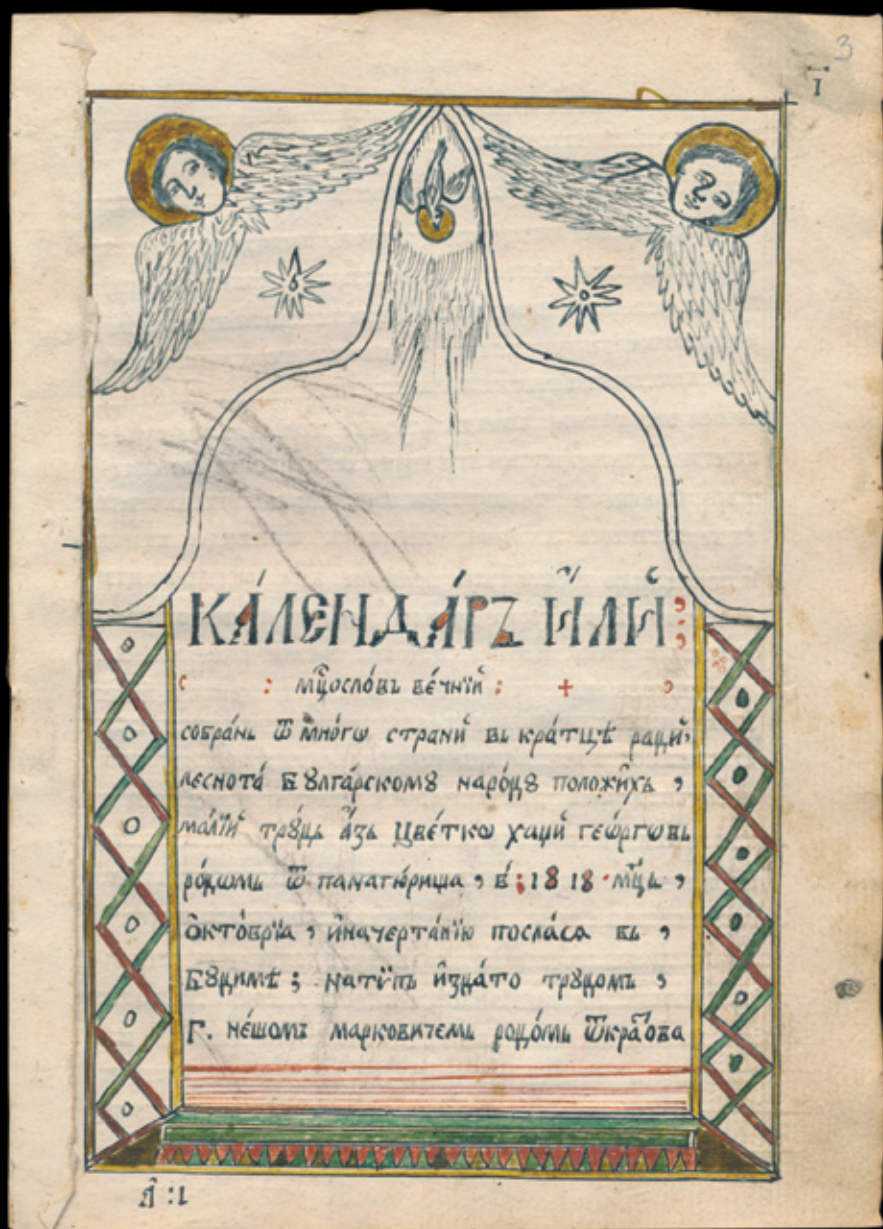 3
І
КА́ЛЕНДА́РЪ И҆́ЛИ҆̀:
: мцⷭ҇осло́въ ве́чнїй : +
собра́нь ѿ мно́гѡ страни̑ вь кра́тцѣ ради̑
леснота̀ Бꙋлга́рскомꙋ наро́дꙋ положи́хъ ,
ма́лїй трꙋ́дь а҆́зь Цве́ткѡ хаџи̑ геѡ́ргѡвь
ро́домь ѿ панагю́рища , в̾ : 1818 · мцⷭ҇ь ,
Ѻ҆кто́врїа , и҆начерта́нїю посла́сѧ вь ,
Бꙋ́димѣ ; на ти́пь и҆зда́то трꙋдо́мъ ,
Г. не́шомъ марковичемь родо́мь ѿ кра́ова
л҃ : 1